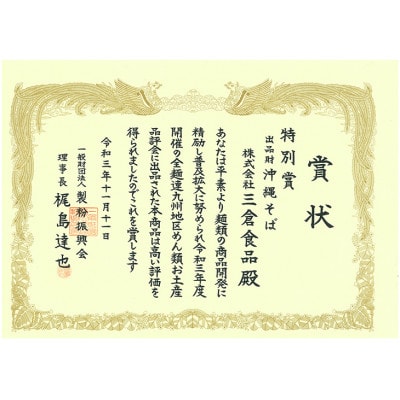 賞状
特別賞
出品財 沖縄そば
株式会社 三倉食品殿
あなたは平素より麺類の商品開発に
精励し普及拡大に努められ令和三年度
開催の全麺連九州地区めん類お土産
品評会に出品された本商品は高い評価を
得られましたのでこれを賞します
令和三年十一月十一日
一般財団法人 製粉振興会
理事長 梶島達也